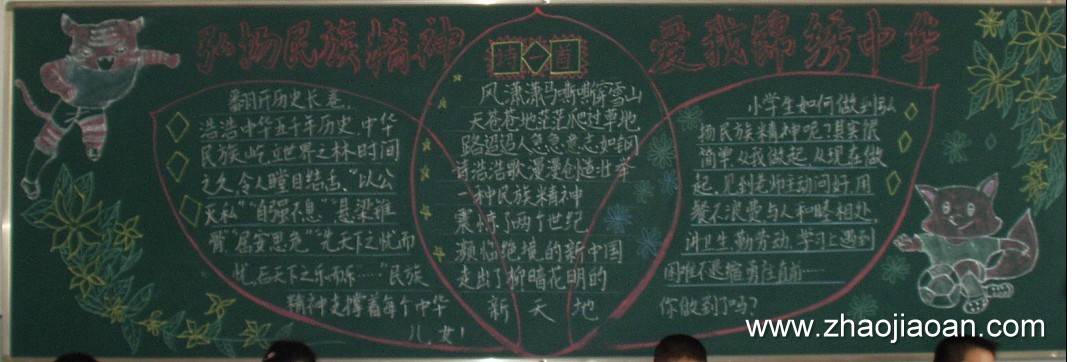 弘扬民族精神
爱我锦绣中华
诗 首
翻开历史长卷,
浩浩中华五千年历史,中华
民族屹立世界之林时间
之久,令人瞠目结舌,"以公
灭私""自强不息""悬梁锥
骨""居安思危""先天下之忧而
忧,后天下之乐而乐……"民族
精神支撑着每个中华
儿女!
风潇潇马嘶嘶穿雪山
天苍苍地茫茫爬过草地
路迢迢人急急意志如钢
诗浩浩歌漫漫创造壮举
一种民族精神
震惊了两个世纪
濒临绝境的新中国
走出了柳暗花明的
新天地
小学生如何做到弘
扬民族精神呢?其实很
简单,从我做起,从现在做
起,见到老师主动问好,用
餐不浪费,与人和睦相处,
讲卫生,勤劳动,学习上遇到
困难不退缩,勇往直前……
你做到了吗?
www.zhaojiaoan.com